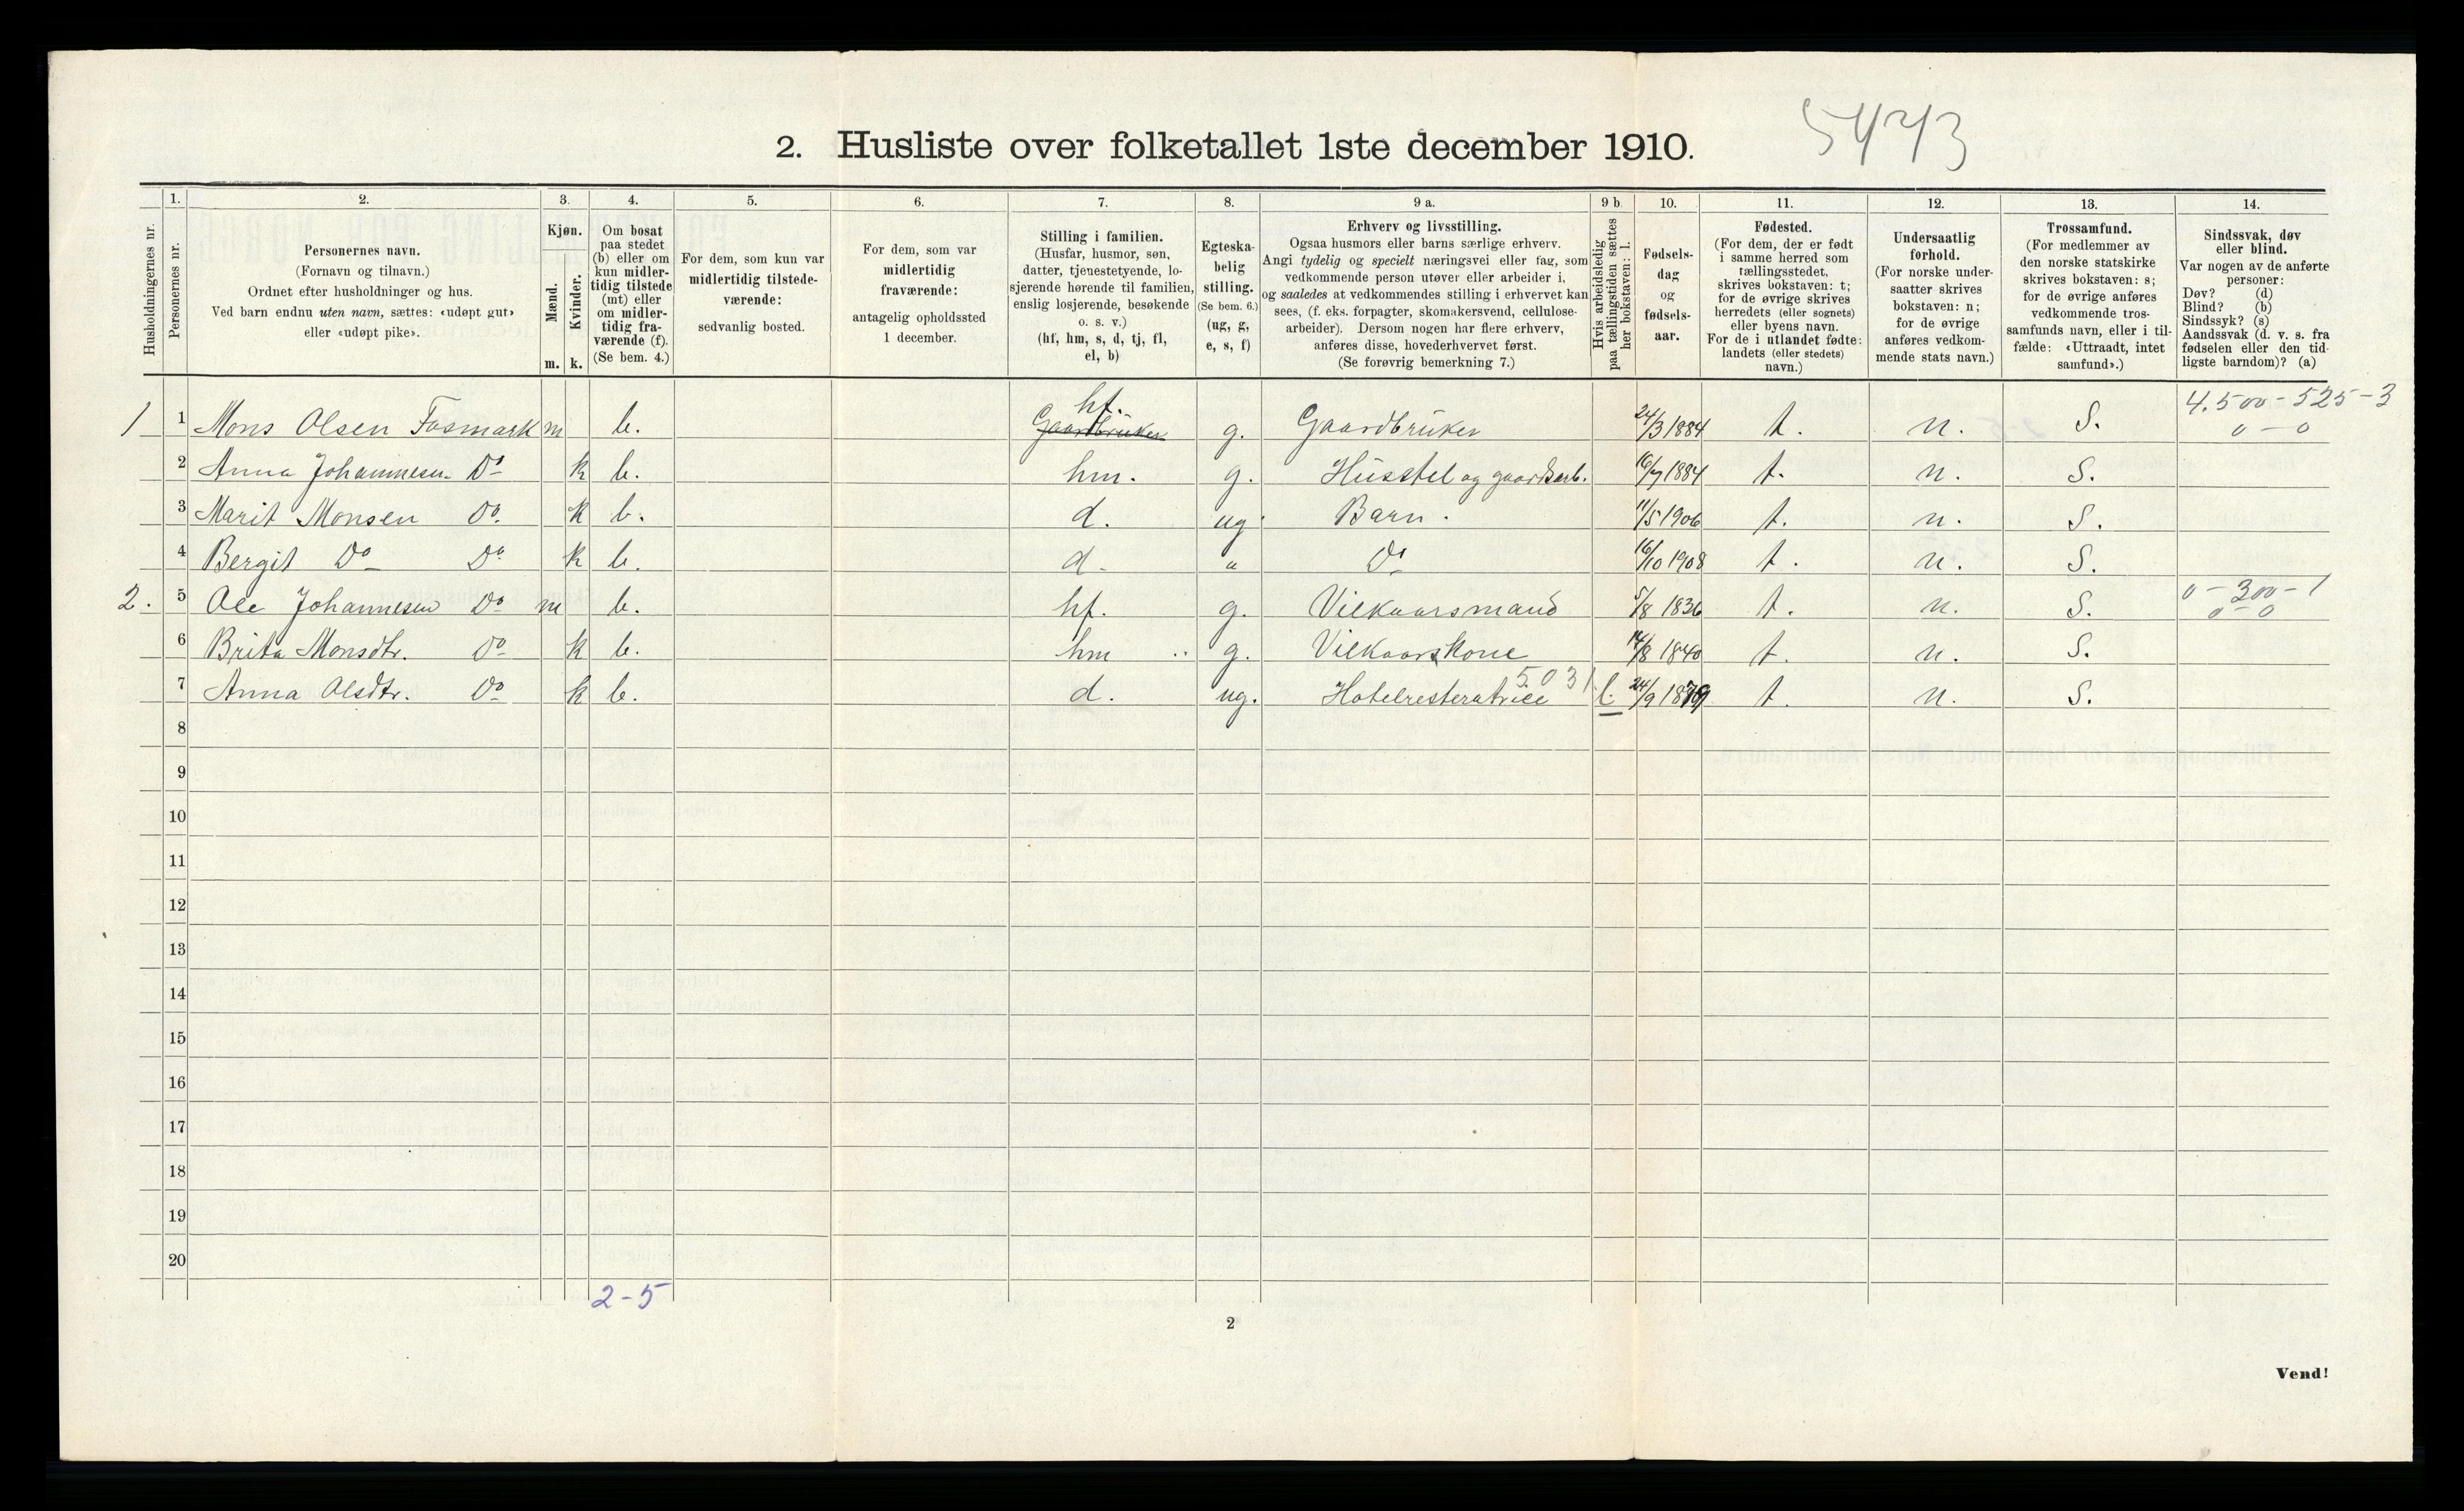 5473
2. Husliste over folketallet 1ste december 1910.
Husholdningernes nr.
1.
Personernes nr.
2.
Personernes navn.
(Fornavn og tilnavn.)
Ordnet efter husholdninger og hus.
Ved barn endnu uten navn, sættes: «udøpt gut»
eller «udøpt pike».
3.
Kjøn.
Mænd.
m.
Kvinder.
k.
4.
Om bosat
paa stedet
(b) eller om
kun midler-
tidig tilstede
(mt) eller
om midler-
tidig fra-
værende (f).
(Se bem. 4.)
5.
For dem, som kun var
midlertidig tilstede-
værende:
sedvanlig bosted.
6.
For dem, som var
midlertidig
fraværende:
antagelig opholdssted
1 december.
7.
Stilling i familien.
(Husfar, husmor, søn,
datter, tjenestetyende, lo-
sjerende hørende til familien,
enslig losjerende, besøkende
o. s. v.)
(hf, hm, s, d, tj, fl,
el, b)
8.
Egteska-
belig
stilling.
(Se bem. 6.)
(ug, g,
e, s, f)
9 a.
Erhverv og livsstilling.
Ogsaa husmors eller barns særlige erhverv.
Angi tydelig og specielt næringsvei eller fag, som
vedkommende person utøver eller arbeider i,
og saaledes at vedkommendes stilling i erhvervet kan
sees, (f. eks. forpagter, skomakersvend, cellulose-
arbeider). Dersom nogen har flere erhverv,
anføres disse, hovederhvervet først.
(Se forøvrig bemerkning 7.)
9 b.
Hvis arbeidsledig
paa tællingstiden sættes
her bokstaven: l.
10.
Fødsels-
dag
og
fødsels-
aar.
11.
Fødested.
(For dem, der er født
i samme herred som
tællingsstedet,
skrives bokstaven: t;
for de øvrige skrives
herredets (eller sognets)
eller byens navn.
For de i utlandet fødte:
landets (eller stedets)
navn.)
12.
Undersaatlig
forhold.
(For norske under-
saatter skrives
bokstaven: n;
for de øvrige
anføres vedkom-
mende stats navn.)
13.
Trossamfund.
(For medlemmer av
den norske statskirke
skrives bokstaven: s;
for de øvrige anføres
vedkommende tros-
samfunds navn, eller i til-
fælde: «Uttraadt, intet
samfund».)
14.
Sindssvak, døv
eller blind.
Var nogen av de anførte
personer:
Døv? (d)
Blind? (b)
Sindssyk? (s)
Aandssvak (d. v. s. fra
fødselen eller den tid-
ligste barndom)? (a)
hf. 4.500 - 525 - 3
1 1 Mons Olsen Fosmark m b. Gaardbruker g. Gaardbruker 24/3 1884 t. n. S. 0 - 0
2 Anna Johannesen Do k b. hm. g. Husstel og gaardsarb. 16/7 1884 t. n. S.
3 Marit Monsen Do. k b. d. ug. Barn. 11/5 1906 t. n. S.
4 Bergit Do Do k b. d. " Do 16/10 1908 t. n. S.
0 - 300 - 1
2. 5 Ole Johannesen Do m b. hf. g. Vilkaarsmand 5/8 1836 t. n. S. 0 - 0
6 Brita Monsdtr. Do k b. hm g. Vilkaarskone 14/8 1840 t. n. S.
5031
7 Anna Olsdtr. Do k b. d. ug. Hotelresteratrice l. 24/9 1879 t. n. S.
8
9
10
11
12
13
14
15
16
17
18
19
20
2 - 5
2
Vend!